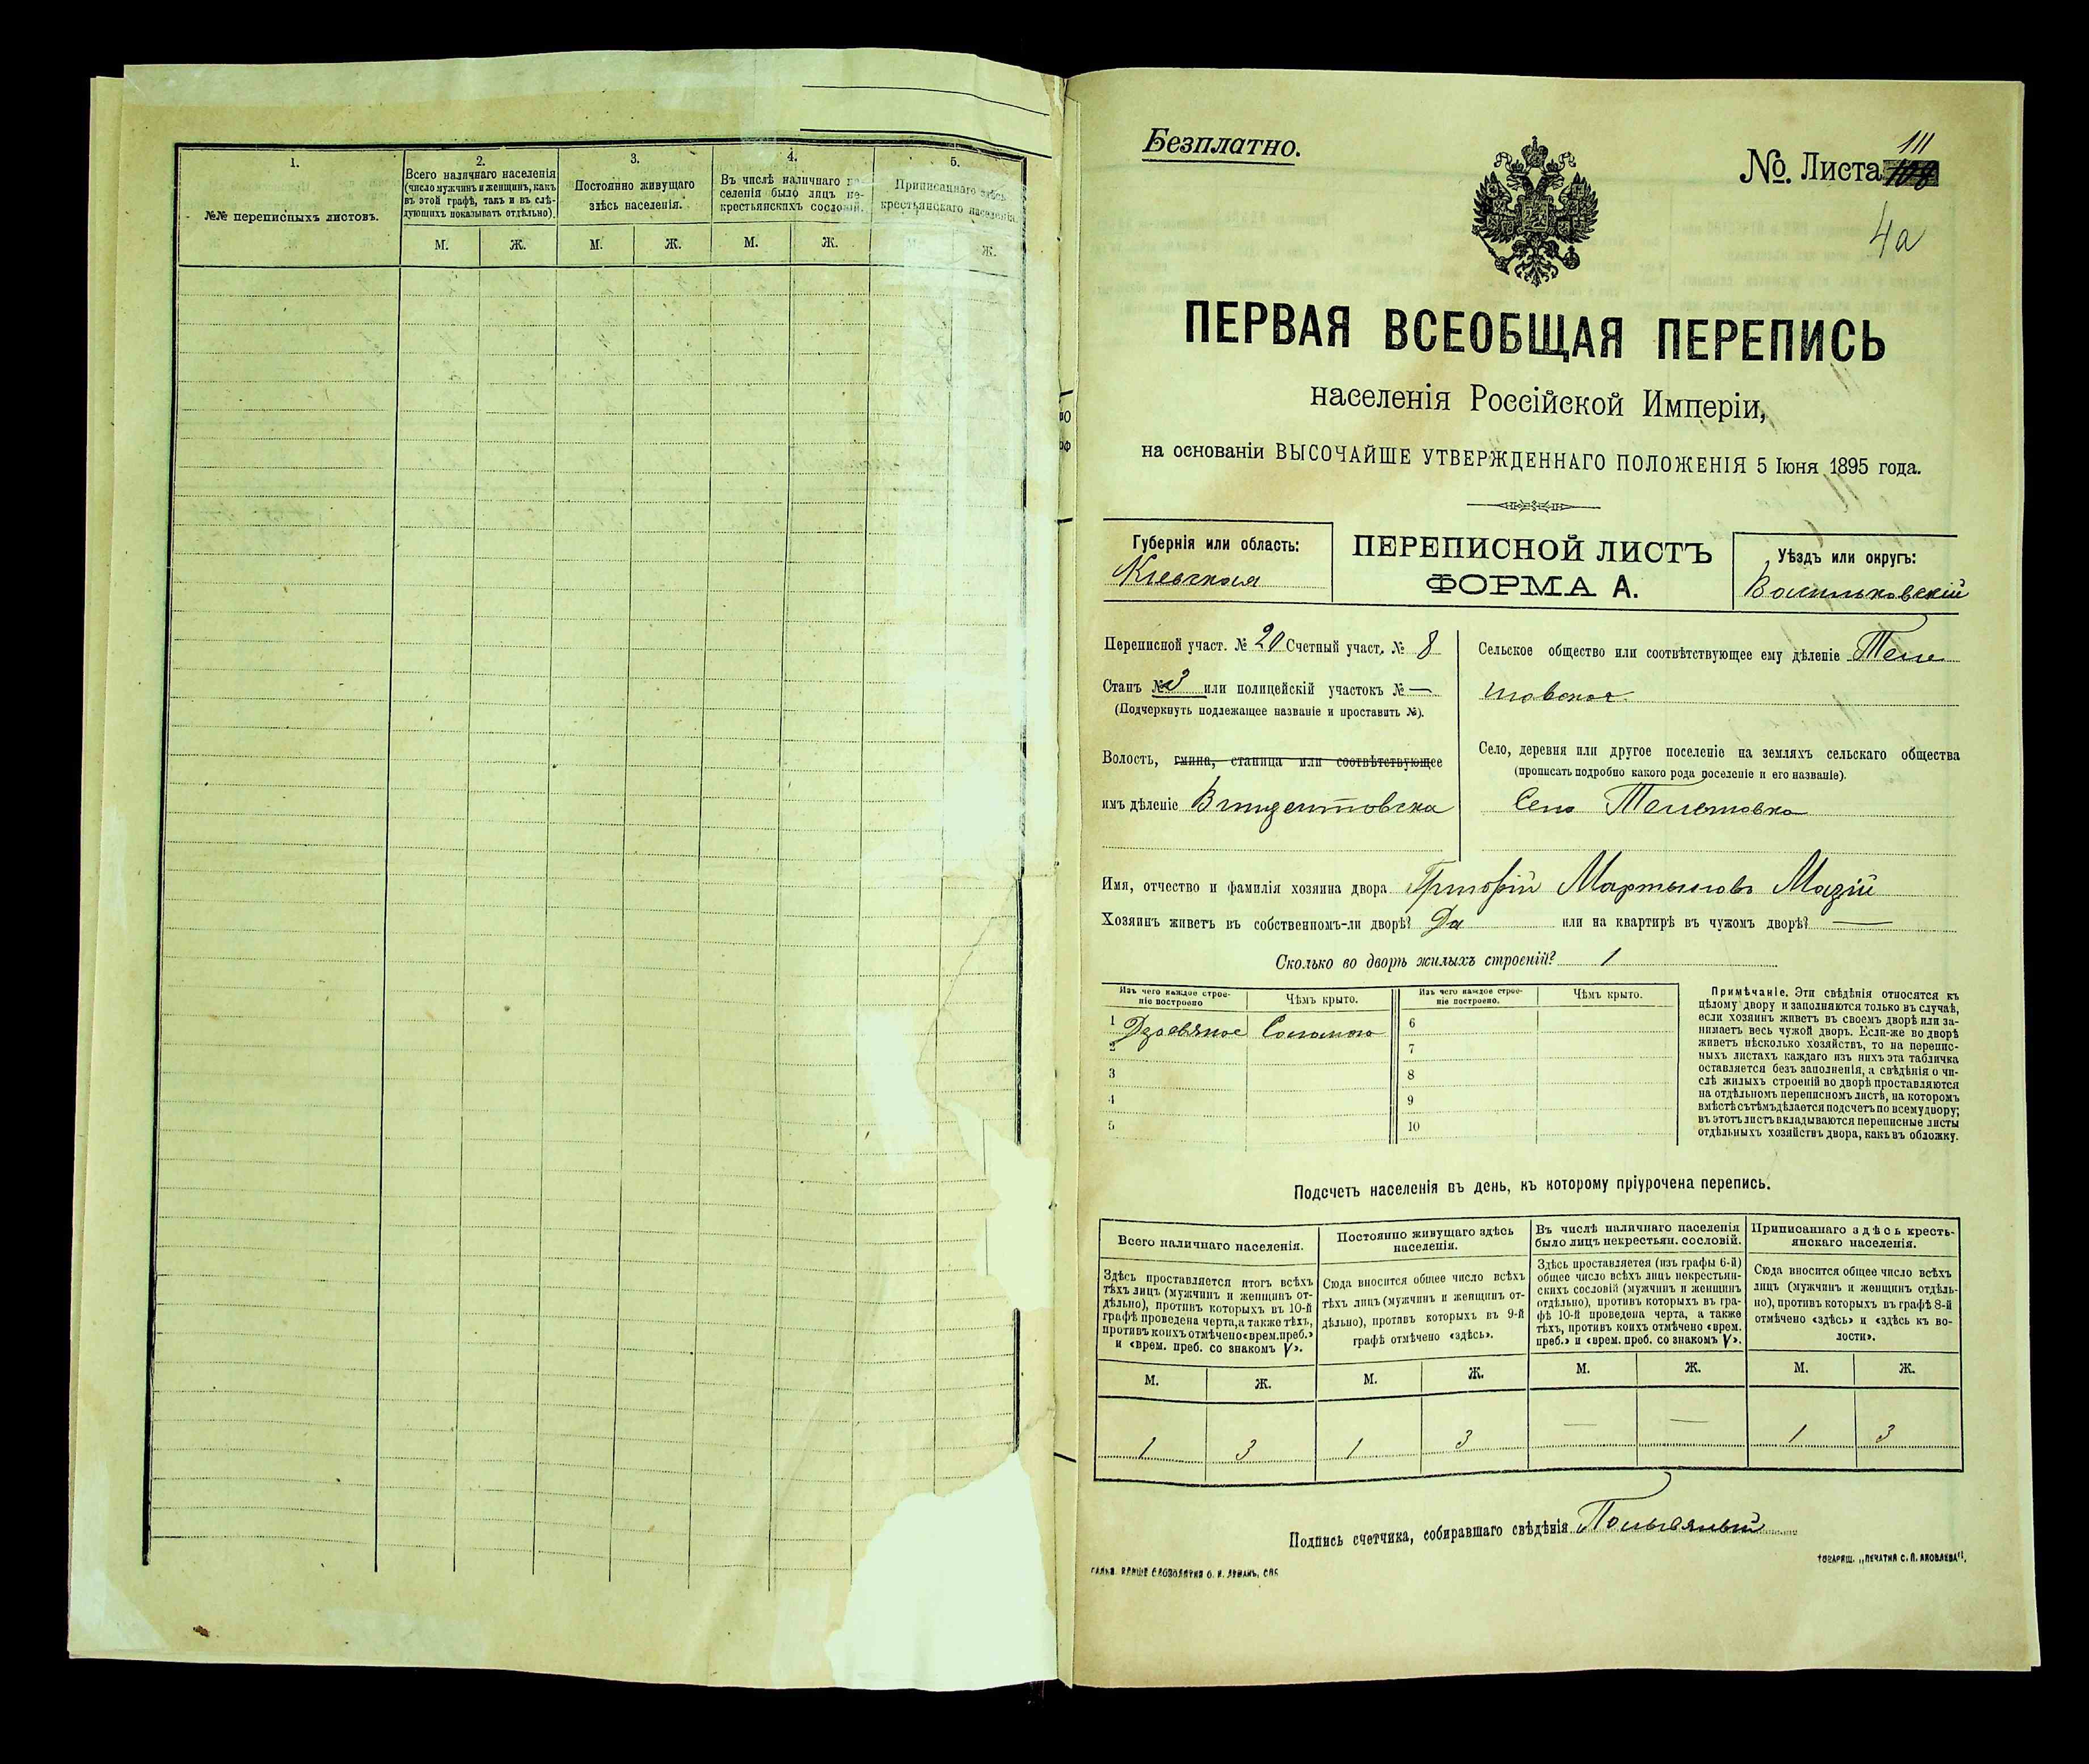 1.
2.
3.
4.
5.
№№ переписныхъ листовъ.
Всего наличнаго населенія
(число мужчинъ и женщинъ, какъ
въ этой графѣ, такъ и въ слѣ-
дующихъ показывать отдѣльно).
Постоянно живущаго
здѣсь населенія.
Въ числѣ наличнаго на-
селенія было лицъ не-
крестьянскихъ сословій.
Приписаннаго здѣсь
крестьянскаго населенія.
М. Ж. М. Ж. М. Ж. М. Ж.
Безплатно.
№ Листа 111
4а
ПЕРВАЯ ВСЕОБЩАЯ ПЕРЕПИСЬ
населенія Россійской Имперіи,
на основаніи ВЫСОЧАЙШЕ УТВЕРЖДЕННАГО ПОЛОЖЕНІЯ 5 Іюня 1895 года.
Губернія или область:
Кіевская
ПЕРЕПИСНОЙ ЛИСТЪ
ФОРМА А.
Уѣздъ или округъ:
Васильковскій
Переписной участ. № 20 Счетный участ. № 8
Станъ № 3 или полицейскій участокъ № —
(Подчеркнуть подлежащее названіе и проставить №).
Волость, гмина, станица или соотвѣтствующее
имъ дѣленіе Винцентовска
Сельское общество или соотвѣтствующее ему дѣленіе Теле
шовское
Село, деревня или другое поселеніе на земляхъ сельскаго общества
(прописать подробно какого рода поселеніе и его названіе).
Село Телешовка
Имя, отчество и фамилія хозяина двора Григорій Мартыновъ Мазій
Хозяинъ живетъ въ собственномъ-ли дворѣ? Да или на квартирѣ въ чужомъ дворѣ? —
Сколько во дворѣ жилыхъ строеній? 1
Изъ чего каждое строе-
ніе построено
Чѣмъ крыто.
Изъ чего каждое строе-
ніе построено.
Чѣмъ крыто.
1 Деревяное Соломою
2
3
4
5
6
7
8
9
10
Примѣчаніе. Эти свѣдѣнія относятся къ
цѣлому двору и заполняются только въ случаѣ,
если хозяинъ живетъ въ своемъ дворѣ или за-
нимаетъ весь чужой дворъ. Если-же во дворѣ
живетъ нѣсколько хозяйствъ, то на перепис-
ныхъ листахъ каждаго изъ нихъ эта табличка
оставляется безъ заполненія, а свѣдѣнія о чи-
слѣ жилыхъ строеній во дворѣ проставляются
на отдѣльномъ переписномъ листѣ, на которомъ
вмѣстѣ съ тѣмъ дѣлается подсчетъ по всему двору;
въ этотъ листъ вкладываются переписные листы
отдѣльныхъ хозяйствъ двора, какъ въ обложку.
Подсчетъ населенія въ день, къ которому пріурочена перепись.
Всего наличнаго населенія.
Здѣсь проставляется итогъ всѣхъ
тѣхъ лицъ (мужчинъ и женщинъ от-
дѣльно), противъ которыхъ въ 10-й
графѣ проведена черта, а также тѣхъ,
противъ коихъ отмѣчено «врем. преб.»
и «врем. преб. со знакомъ V».
Постоянно живущаго здѣсь
населенія.
Сюда вносится общее число всѣхъ
тѣхъ лицъ (мужчинъ и женщинъ от-
дѣльно), противъ которыхъ въ 9-й
графѣ отмѣчено «здѣсь».
Въ числѣ наличнаго населенія
было лицъ некрестьян. сословій.
Здѣсь проставляется (изъ графы 6-й)
общее число всѣхъ лицъ некрестьян-
скихъ сословій (мужчинъ и женщинъ
отдѣльно), противъ которыхъ въ гра-
фѣ 10-й проведена черта, а также
тѣхъ, противъ коихъ отмѣчено «врем.
преб.» и «врем. преб. со знакомъ V».
Приписаннаго здѣсь кресть-
янскаго населенія.
Сюда вносится общее число всѣхъ
лицъ (мужчинъ и женщинъ отдѣль-
но), противъ которыхъ въ графѣ 8-й
отмѣчено «здѣсь» и «здѣсь къ во-
лости».
М. Ж. М. Ж. М. Ж. М. Ж.
1 3 1 3 — — 1 3
Подпись счетчика, собиравшаго свѣдѣнія
ТОВАРИЩ. „ПЕЧАТНЯ С. П. ЯКОВЛЕВА".